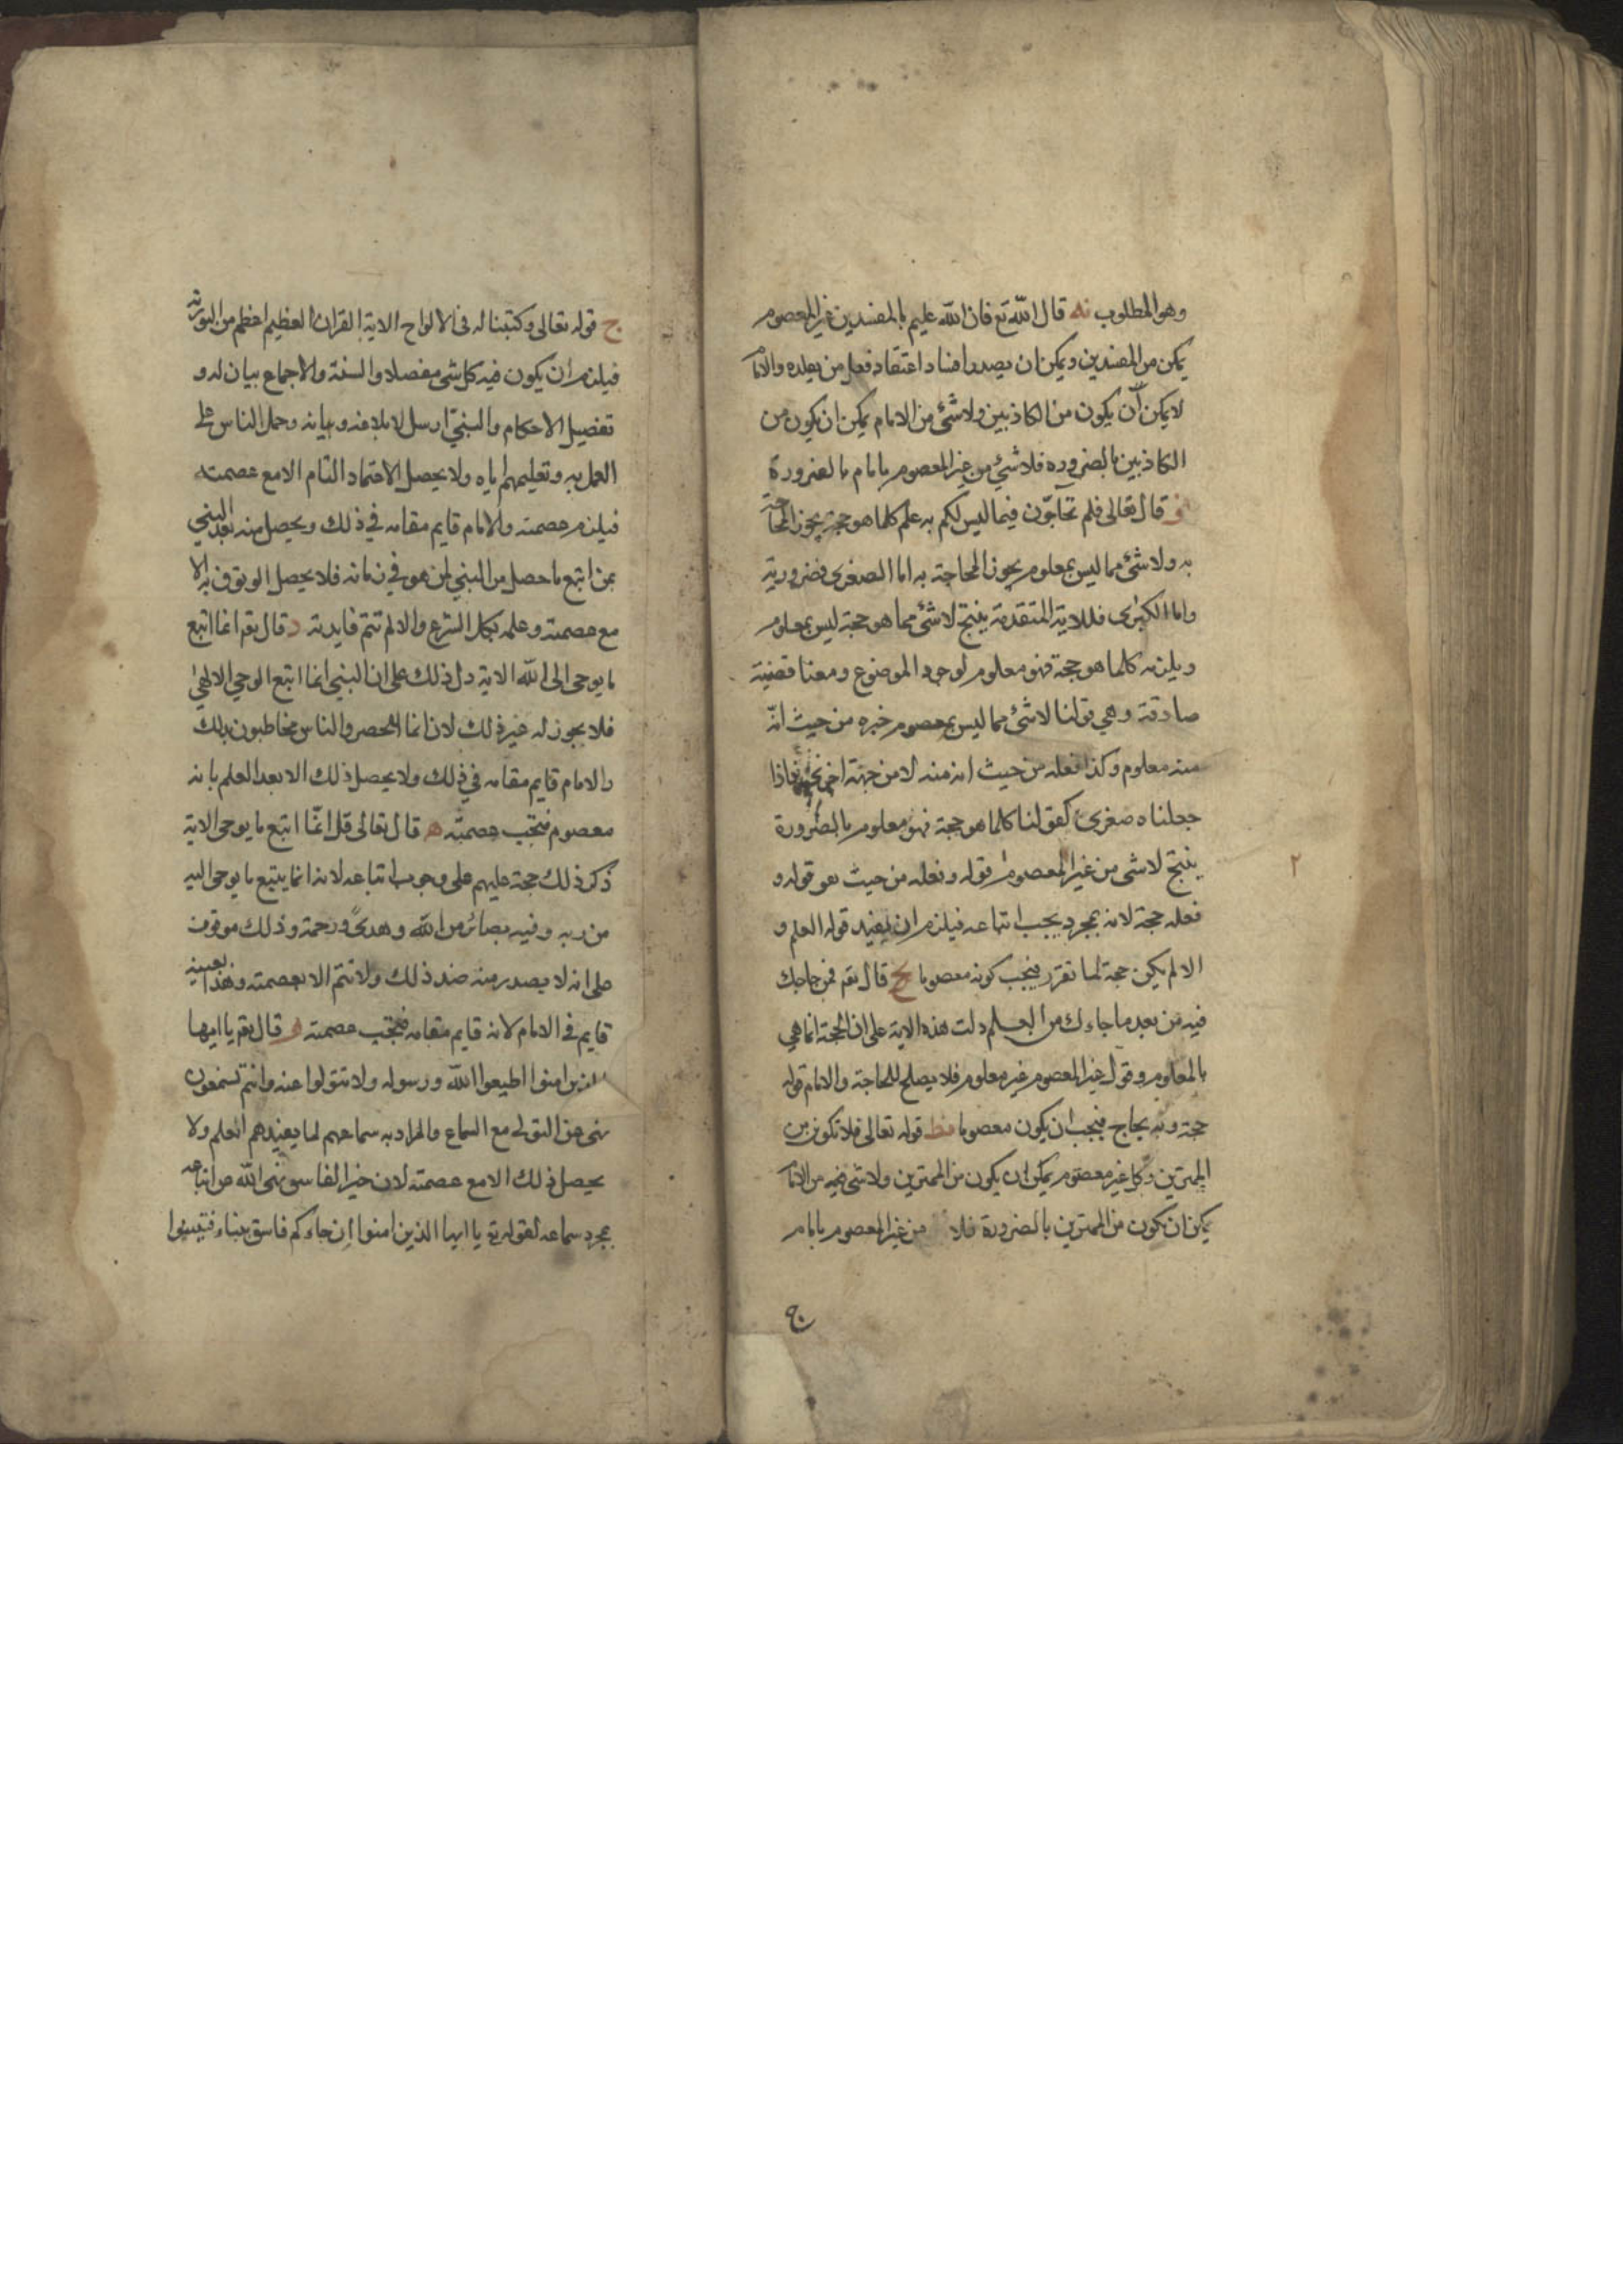 وهو المطلوب نه قال الله تع فان الله عليم بالمفسدين غير المعصوم
يمكن من المفسدين ويمكن ان يصدر افساد اعتقاد فعل من يقلده والامام
لا يمكن ان يكون من الكاذبين ولا شئ من الامام يمكن ان يكون من
الكاذبين بالضروره فلا شئ من غير المعصوم بامام بالضرورة
نو قال تعالى فلم تحاجّون فيما ليس لكم به علم كلما هو حجة يجوز المحاجة
به ولا شئ مما ليس بمعلوم يجوز المحاجة به اما الصغرى فضرورية
واما الكبرى فللاية المتقدمة ينتج لا شئ مما هو حجة ليس بمعلوم
ويلزمه كلما هو حجة فهو معلوم لوجود الموضوع ومعنا قضية
صادقة وهي قولنا لا شئ مما ليس بمعصوم خبره من حيث انّه
منه معلوم وكذا فعله من حيث انه منه لا من جهة اخرى فاذا
جعلناه صغرى كقولنا كلما هو حجة فهو معلوم بالضرورة
ينتج لا شئ من غير المعصوم قوله وفعله من حيث هو قوله و
فعله حجة لانه بمجرد يجب اتباعه فيلزم ان يفيد قوله العلم و
الا لم يكن حجة لما تقرر فيجب كونه معصوما نح قال تعم فمن حاجك
فيه من بعد ما جاءك من العلم دلت هذه الاية على ان الحجة انما هي
بالمعلوم وقول غير المعصوم غير معلوم فلا يصلح للمحاجة والامام قوله
حجة وبه يحاج فيجب ان يكون معصوما نط قوله تعالى فلا تكونن من
الممترين وكل غير معصوم يمكن ان يكون من الممترين ولا شئ من الامام
يمكن ان يكون من الممترين بالضرورة فلا من غير المعصوم بامام
ج
٢
ج قوله تعالى وكتبنا له في الالواح الاية القران العظيم اعظم من التورية
فيلزم ان يكون فيه كل شئ مفصلا والسنة والاجماع بيان له و
تفصيل الاحكام والنبي ارسل لابلاغه وبيانه وحمل الناس على
العمل به وتعليمهم اياه ولا يحصل الاعتماد التام الا مع عصمته
فيلزم عصمته والامام قايم مقامه في ذلك ويحصل منه بعد النبي
بمن اتبع ما حصل من النبي لمن هو في زمانه فلا يحصل الوثوق به الا
مع عصمته وعلمه بكل الشرع والا لم تتم فايدته د قال تعم انما اتبع
ما يوحى الى الله الاية دل ذلك على ان النبي انما اتبع الوحي الالهي
فلا يجوز له غير ذلك لان انما للحصر والناس مخاطبون بذلك
والامام قايم مقامه في ذلك ولا يحصل ذلك الا بعد العلم بانه
معصوم فيجب عصمته ه قال تعالى قل انّما اتبع ما يوحى الاية
ذكر ذلك حجة عليهم على وجوب اتباعه لانه انما يتبع ما يوحى اليه
من ربه وفيه بصائر من الله وهدىً ورحمة وذلك موقوف
على انه لا يصدر منه ضد ذلك ولا تتم الا بعصمته وهذا بعينه
قايم في الامام لانه قايم مقامه فيجب عصمته و قال تعم يا ايها
الذين امنوا اطيعوا الله ورسوله ولا تتولوا عنه وانتم تسمعون
نهى عن التولى مع السماع والمراد به سماعهم لما يفيدهم العلم ولا
يحصل ذلك الا مع عصمته لان خبر الفاسق نهى الله عن اتباعه
بمجرد سماعه لقوله تع يا ايها الذين امنوا إن جاءكم فاسق بنباء فتبينوا